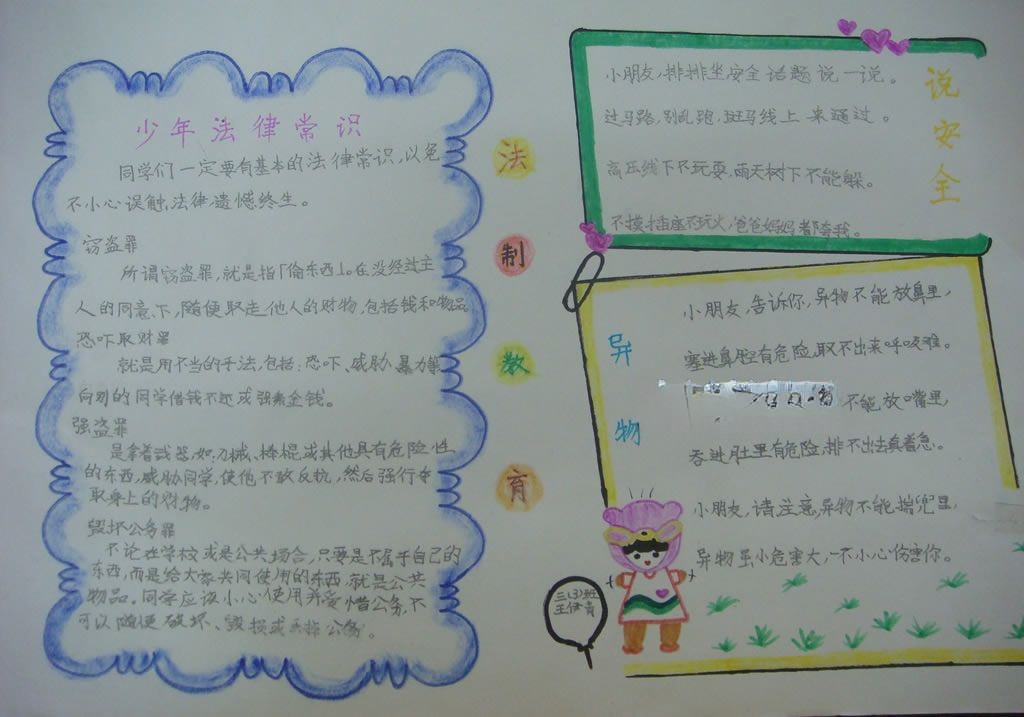 少年法律常识
同学们一定要有基本的法律常识，以免
不小心误触法律遗憾终生。
窃盗罪
所谓窃盗罪，就是指「偷东西」。在没经过主
人的同意下，随便取走他人的财物，包括钱和物品
恐吓取财罪
就是用不当的手法，包括：恐吓、威胁、暴力等
向别的同学借钱不还或强索金钱。
强盗罪
是拿着武器，如刀械、棒棍或其他具有危险性
的东西，威胁同学，使他不敢反抗，然后强行夺
取身上的财物。
毁坏公务罪
不论在学校或是公共场合，只要是不属于自己的
东西，而是给大家共同使用的东西，就是公共
物品。同学应该小心使用并爱惜公务，不
可以随便破坏、毁损或丢掉公务。
法
制
教
育
说安全
小朋友，排排坐，安全话题说一说。
过马路，别乱跑，斑马线上来通过。
高压线下不玩耍，雨天树下不能躲。
不摸插座不玩火，爸爸妈妈都夸我。
异物
小朋友，告诉你，异物不能放鼻里，
塞进鼻腔有危险，取不出来呼吸难。
不能放嘴里，
吞进肚里有危险，排不出去真着急。
小朋友，请注意，异物不能揣兜里，
异物虽小危害大，一不小心伤害你。
三(3)班
王伊